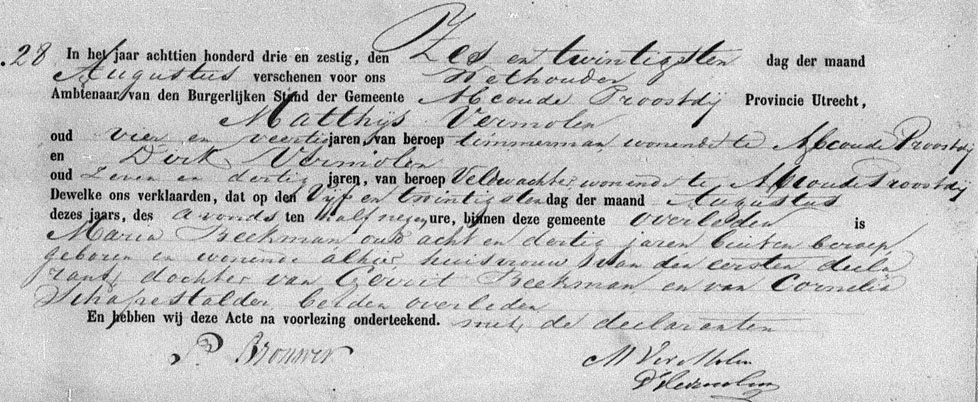 28 In het jaar achttien honderd drie en zestig, den Zes en twintigsten dag der maand
Augustus verschenen voor ons Wethouder
Ambtenaar van den Burgerlijken Stand der Gemeente Abcoude Proostdij Provincie Utrecht,
Matthijs Vermolen
oud vier en veertig jaren, van beroep timmerman wonende te Abcoude Proostdij
en Dirk Vermolen
oud zeven en dertig jaren, van beroep Veldwachter wonende te Abcoude Proostdij
Dewelke ons verklaarden, dat op den Vijf en twintigsten dag der maand Augustus
dezes jaars, des avonds ten half negen ure, binnen deze gemeente overleden is
Maria Beekman oud acht en dertig jaren buiten beroep
geboren en wonende alhier huisvrouw van den eersten decla
rant, dochter van Gerrit Beekman en van Cornelia
Schapestalder beiden overleden
En hebben wij deze Acte na voorlezing onderteekend. met de declaranten
P. Brouwer M VerMolen
D Vermolen